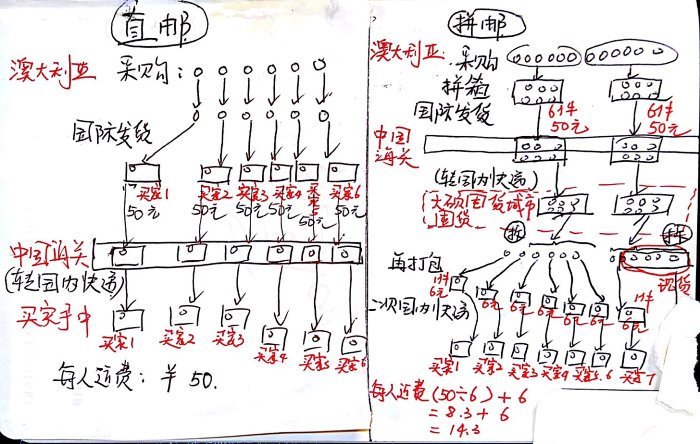 直邮
澳大利亚 采购:
国际发货
买家1 买家2 买家3 买家4 买家5 买家6
50元 50元 50元 50元 50元 50元
中国海关
(转国内快递)
买家手中
买家1 买家2 买家3 买家4 买家5 买家6
每人运费: ¥ 50.
拼邮
澳大利亚 采购
拼箱
国际发货
6件 6件
50元 50元
中国海关
(转国内快递)
囤货
拆 拆
再打包 现货
1件 1件
6元 6元 6元 6元 6元 6元 6元
二次国内快递
买家1 买家2 买家3 买家4 买家5.6 买家7
每人运费 (50÷6) + 6
= 8.3 + 6
= 14.3